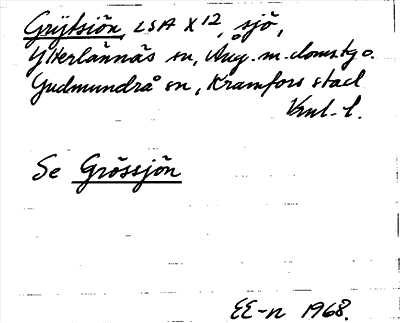 Grytsjön, LSA X 12, sjö,
Ytterlännäs sn, Ång. m. domstg o.
Gudmundrå sn, Kramfors stad
Vnl. l.
Se Grössjön
EE-n 1968.